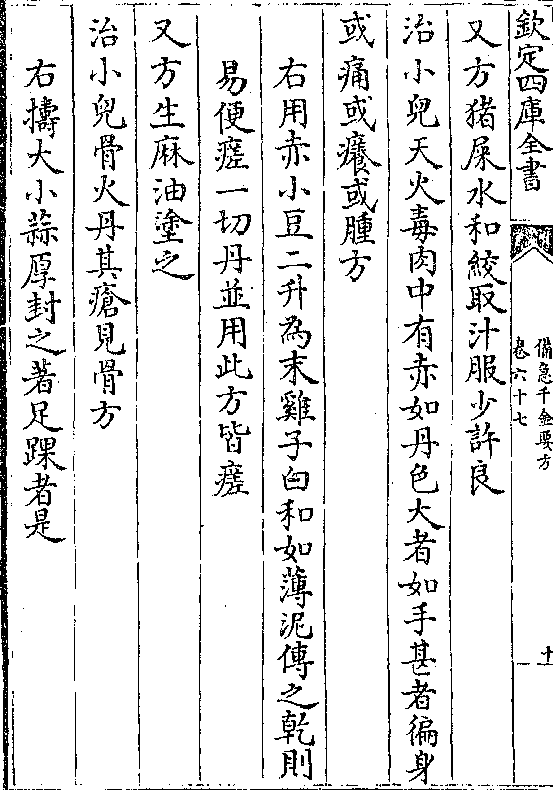 欽定四庫全書
備急千金要方
卷六十七
十一
又方猪屎水和絞取汁服少許良
治小兒天火毒肉中有赤如丹色大者如手甚者徧身
或痛或癢或腫方
右用赤小豆二升為末雞子白和如薄泥傅之乾則
易便瘥一切丹並用此方皆瘥
又方生麻油塗之
治小兒骨火丹其瘡見骨方
右擣大小蒜厚封之著足踝者是